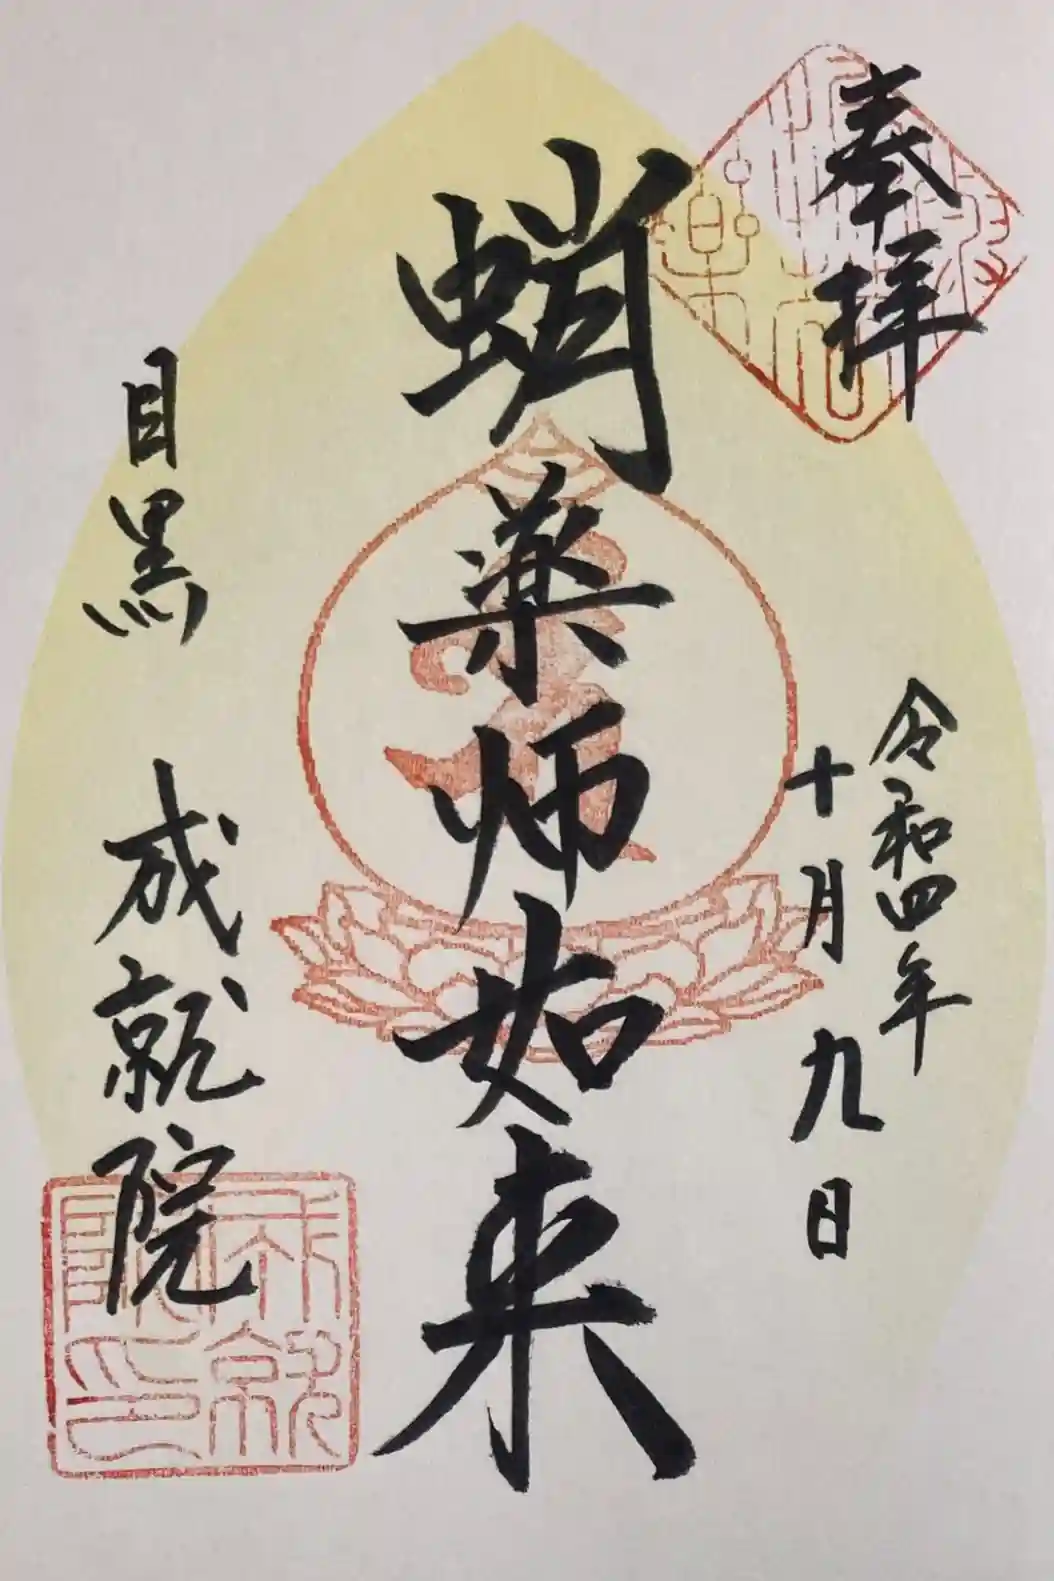 奉拝
令和四年
十月九日
蛸薬師如来
目黒 成就院
成就院印